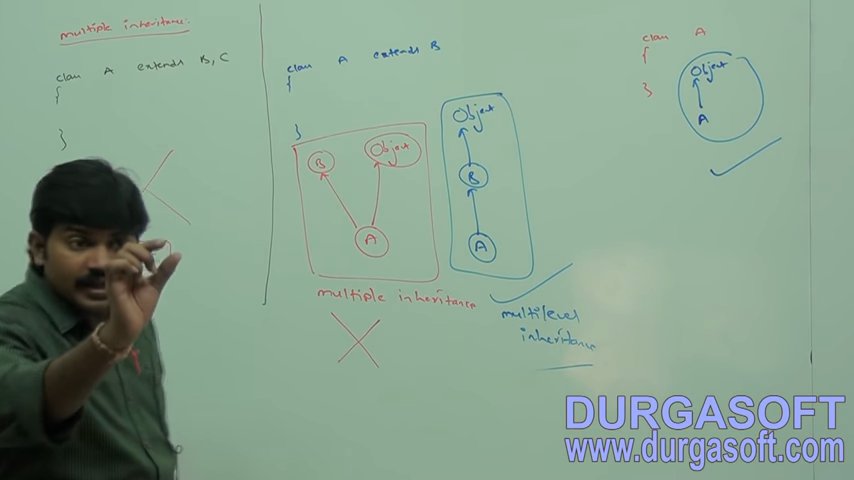 multiple inheritance:
class A extends B, C
{
}
class A extends B
{
}
B
Object
A
multiple inheritance
Object
B
A
multilevel
inheritance
class A
{
}
Object
A
DURGASOFT
www.durgasoft.com